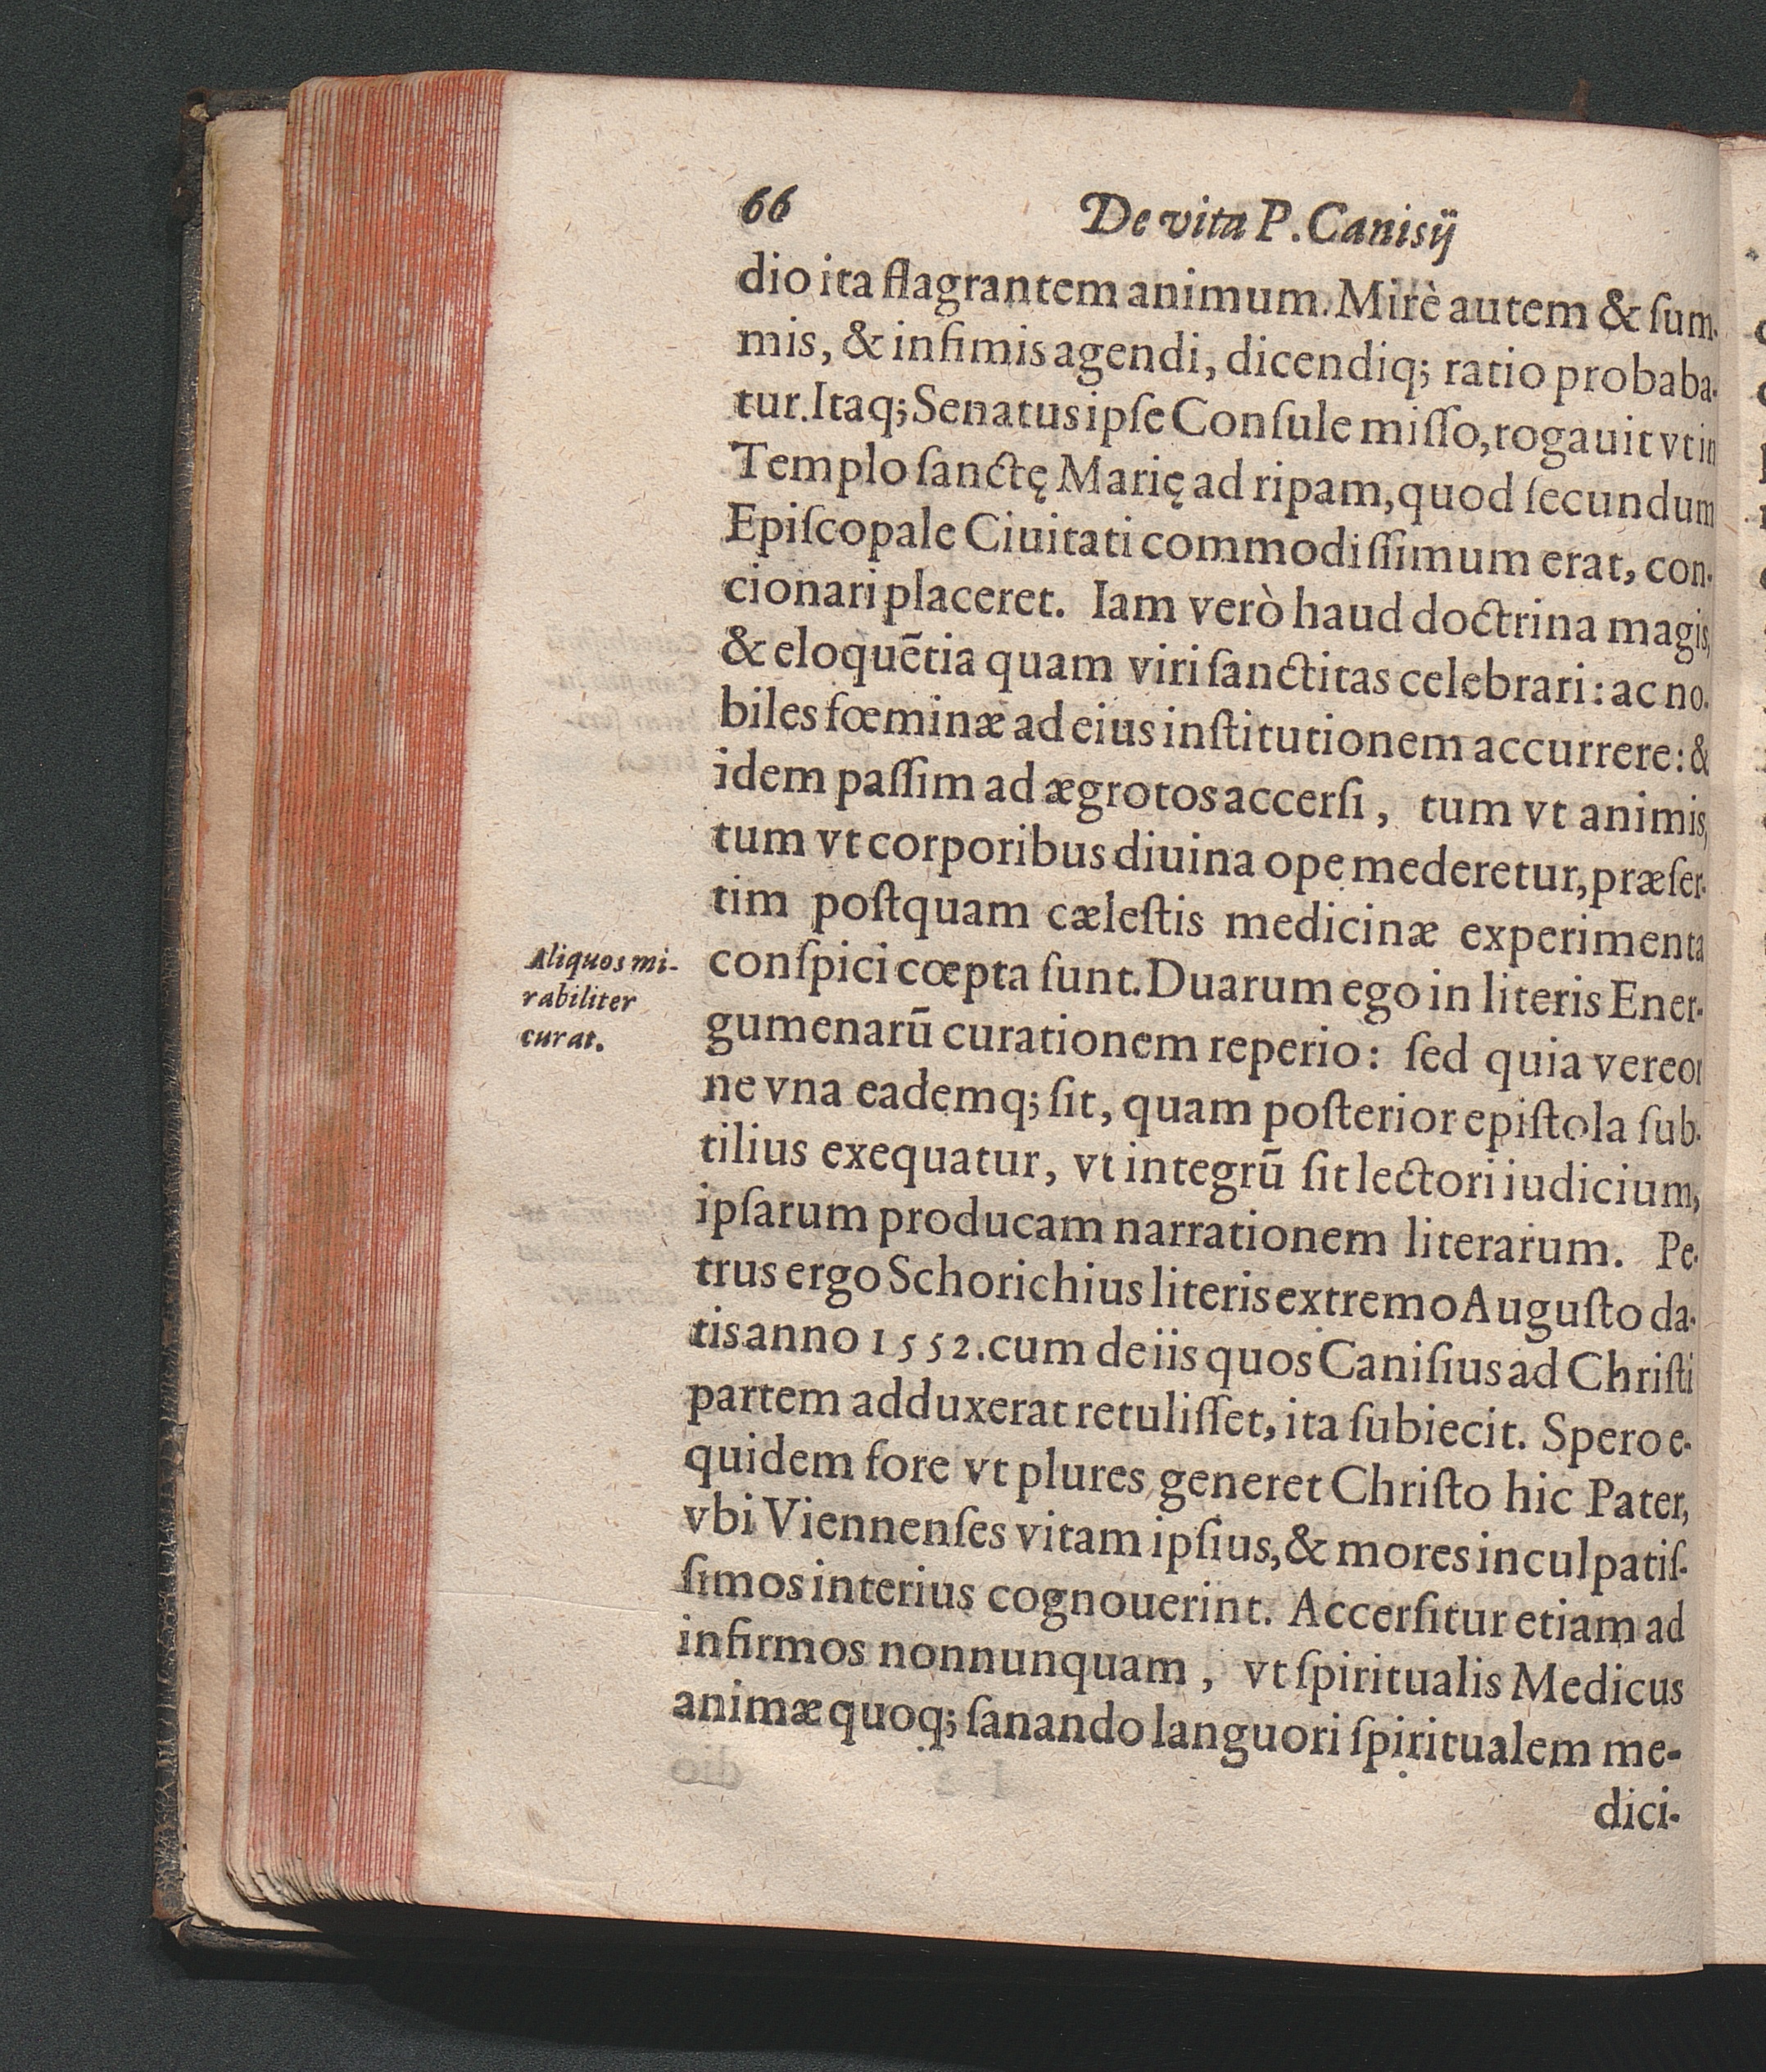 66 De vita P. Canisij
dio ita flagrantem animum. Mirè autem & ſum-
mis, & infimis agendi, dicendiq; ratio probaba-
tur. Itaq; Senatus ipſe Conſule miſſo, rogauit vt in
Templo ſanctę Marię ad ripam, quod ſecundum
Epiſcopale Ciuitati commodiſſimum erat, con-
cionari placeret. Iam verò haud doctrina magis,
& eloquẽtia quam viri ſanctitas celebrari: ac no-
biles fœminæ ad eius inſtitutionem accurrere: &
idem paſſim ad ægrotos accerſi, tum vt animis,
tum vt corporibus diuina ope mederetur, præſer-
tim poſtquam cæleſtis medicinæ experimenta
Aliquos mi-
rabiliter
curat.
conſpici cœpta ſunt. Duarum ego in literis Ener-
gumenarũ curationem reperio: ſed quia vereor
ne vna eademq; ſit, quam poſterior epiſtola ſub-
tilius exequatur, vt integrũ ſit lectori iudicium,
ipſarum producam narrationem literarum. Pe-
trus ergo Schorichius literis extremo Auguſto da-
tis anno 1552. cum de iis quos Caniſius ad Chriſti
partem adduxerat retuliſſet, ita ſubiecit. Spero e-
quidem fore vt plures generet Chriſto hic Pater,
vbi Viennenſes vitam ipſius, & mores inculpatiſ-
ſimos interius cognouerint. Accerſitur etiam ad
infirmos nonnunquam, vt ſpiritualis Medicus
animæ quoq; ſanando languori ſpiritualem me-
dici-